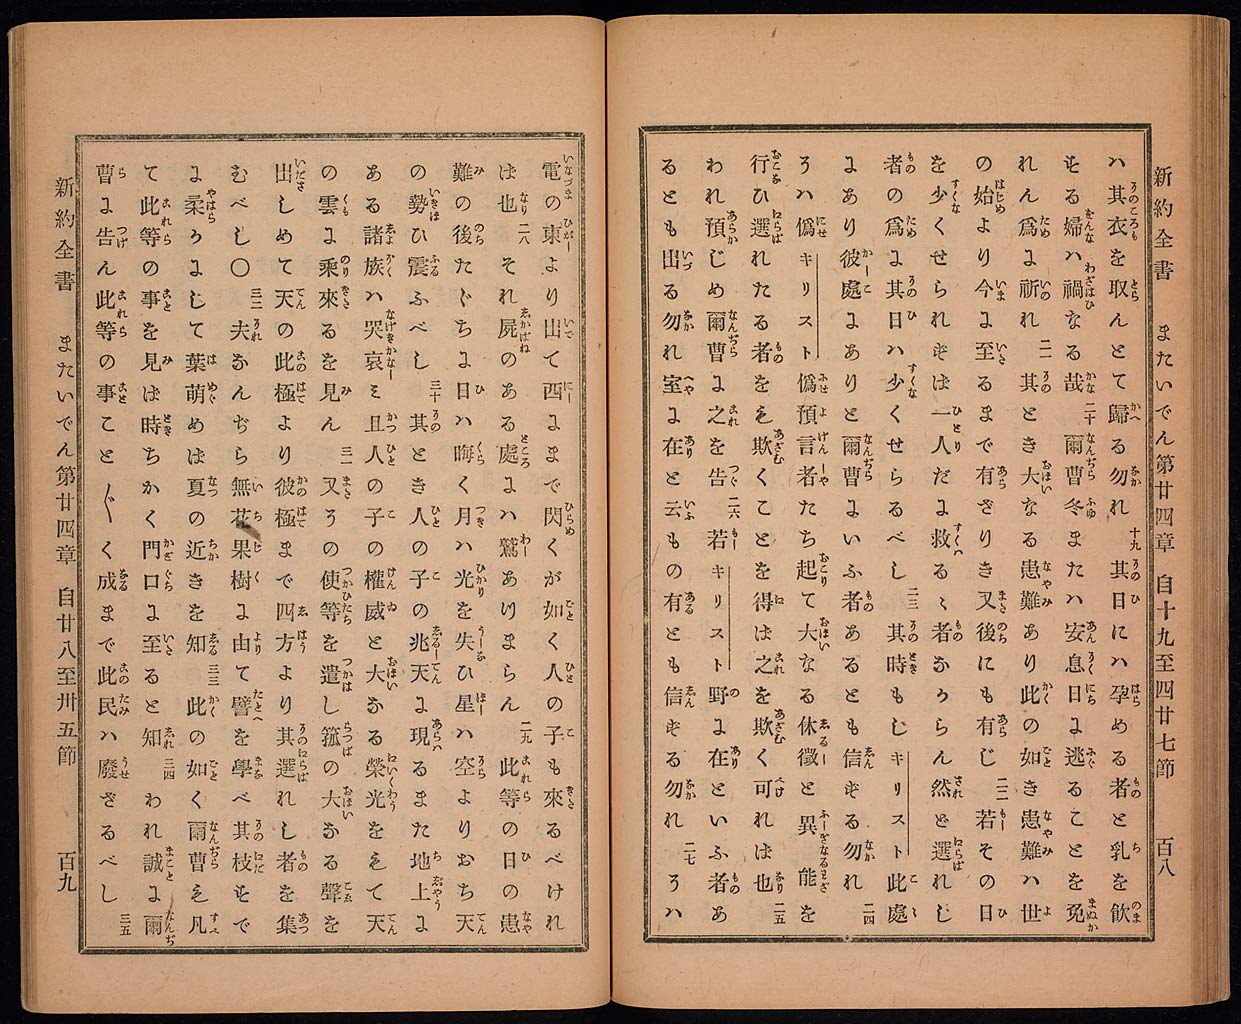 新約全書　またいでん第廿四章　自十九至四廿七節　百八
ハ其衣を取んとて歸る勿れ 十九 其日にハ孕める者と乳を飮
する婦ハ禍なる哉 二十 爾曹冬またハ安息日に逃ることを免
れん爲に祈れ 二一 其とき大なる患難あり此の如き患難ハ世
の始より今に至るまで有ざりき又後にも有じ 二二 若その日
を少くせられずは一人だに救るゝ者なからん然ど選れし
者の爲に其日ハ少くせらるべし 二三 其時もしキリスト此處
にあり彼處にありと爾曹にいふ者あるとも信ずる勿れ 二四
そハ僞キリスト僞預言者たち起て大なる休徵と異能を
行ひ選れたる者をも欺くことを得は之を欺く可れは也 二五
われ預じめ爾曹に之を告ぐ 二六 若キリスト野に在といふ者あ
るとも出る勿れ室に在と云もの有とも信ずる勿れ 二七 そハ
電の東より出て西にまで閃くが如く人の子も來るべけれ
は也 二八 それ屍のある處にハ鷲あつまらん 二九 此等の日の患
難の後たゞちに日ハ晦く月ハ光を失ひ星ハ空よりおち天
の勢ひ震ふべし 三十 其とき人の子の兆天に現るまた地上に
ある諸族ハ哭哀み且人の子の權威と大なる榮光をもて天
の雲に乘來るを見ん 三一 又その使等を遣し箛の大なる聲を
出しめて天の此極より彼極まで四方より其選れし者を集
むべし〇 三二 夫なんぢら無花果樹に由て譬を學べ其枝すで
に柔かにして葉萌めは夏の近きを知 三三 此の如く爾曹も凡
て此等の事を見は時ちかく門口に至ると知 三四 われ誠に爾
曹に告ん此等の事こと〴〵く成まで此民ハ廢ざるべし 三五
新約全書　またいでん第廿四章　自廿八至卅五節　百九